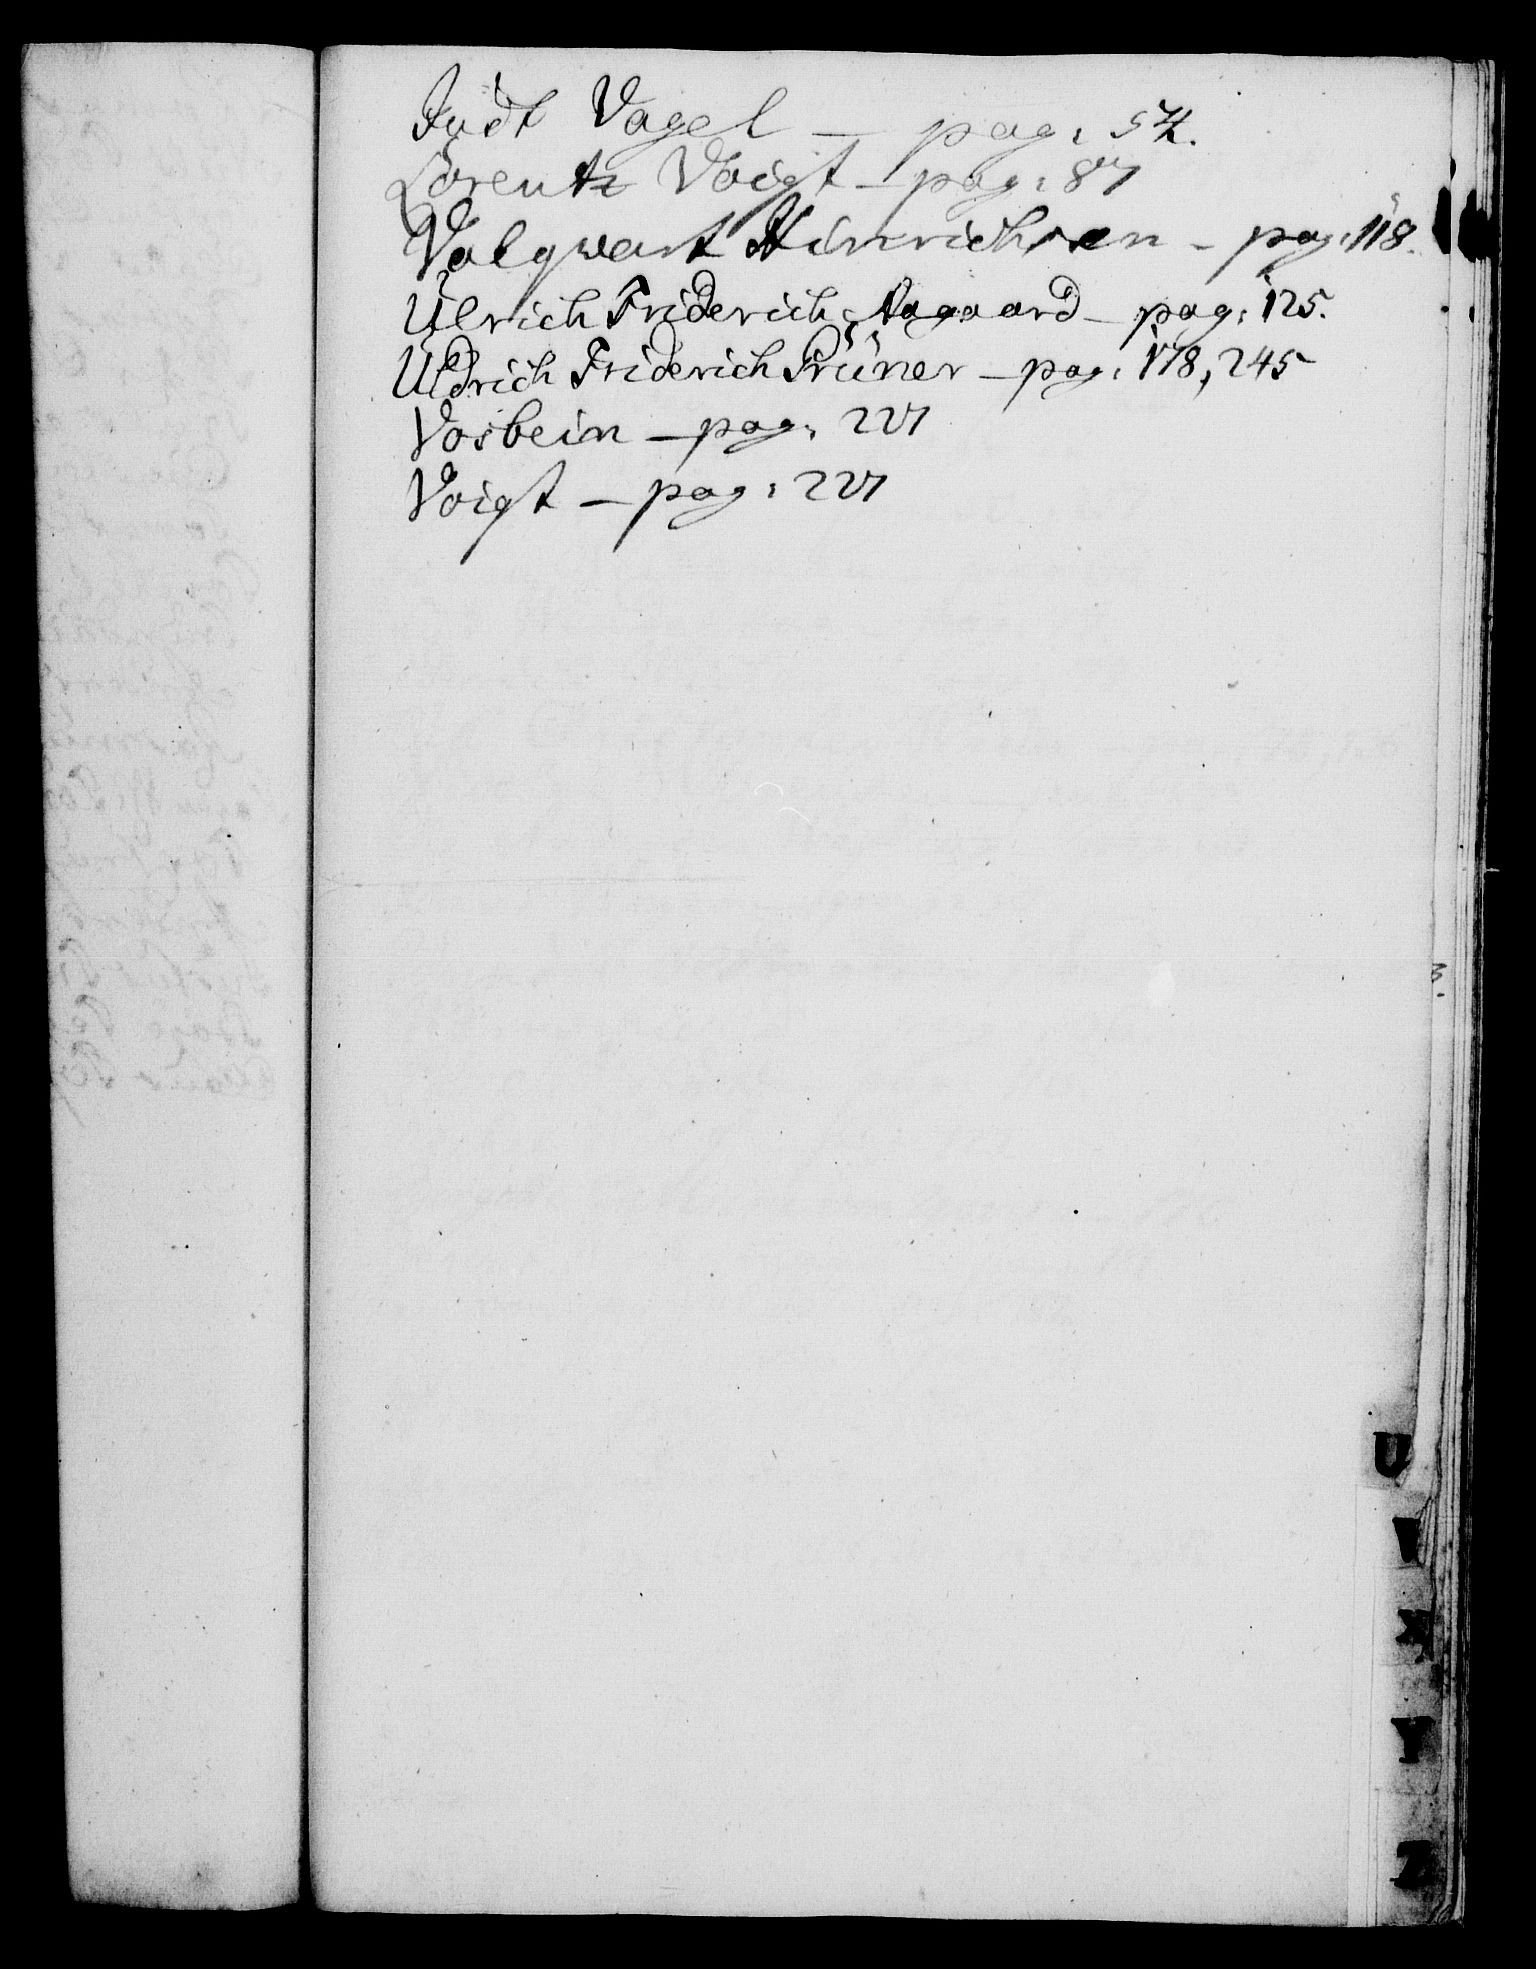 Judt Vagel — pag: 54.
Lorentz Voigt — pag: 87
Valqwart Hinrichsen — pag: 118.
Ulrich Friderich Aagaard — pag: 125.
Uldrich Friderich Prüner — pag: 178, 245
Vosbein — pag: 227
Voigt — pag: 227
U
V
X
Y
Z